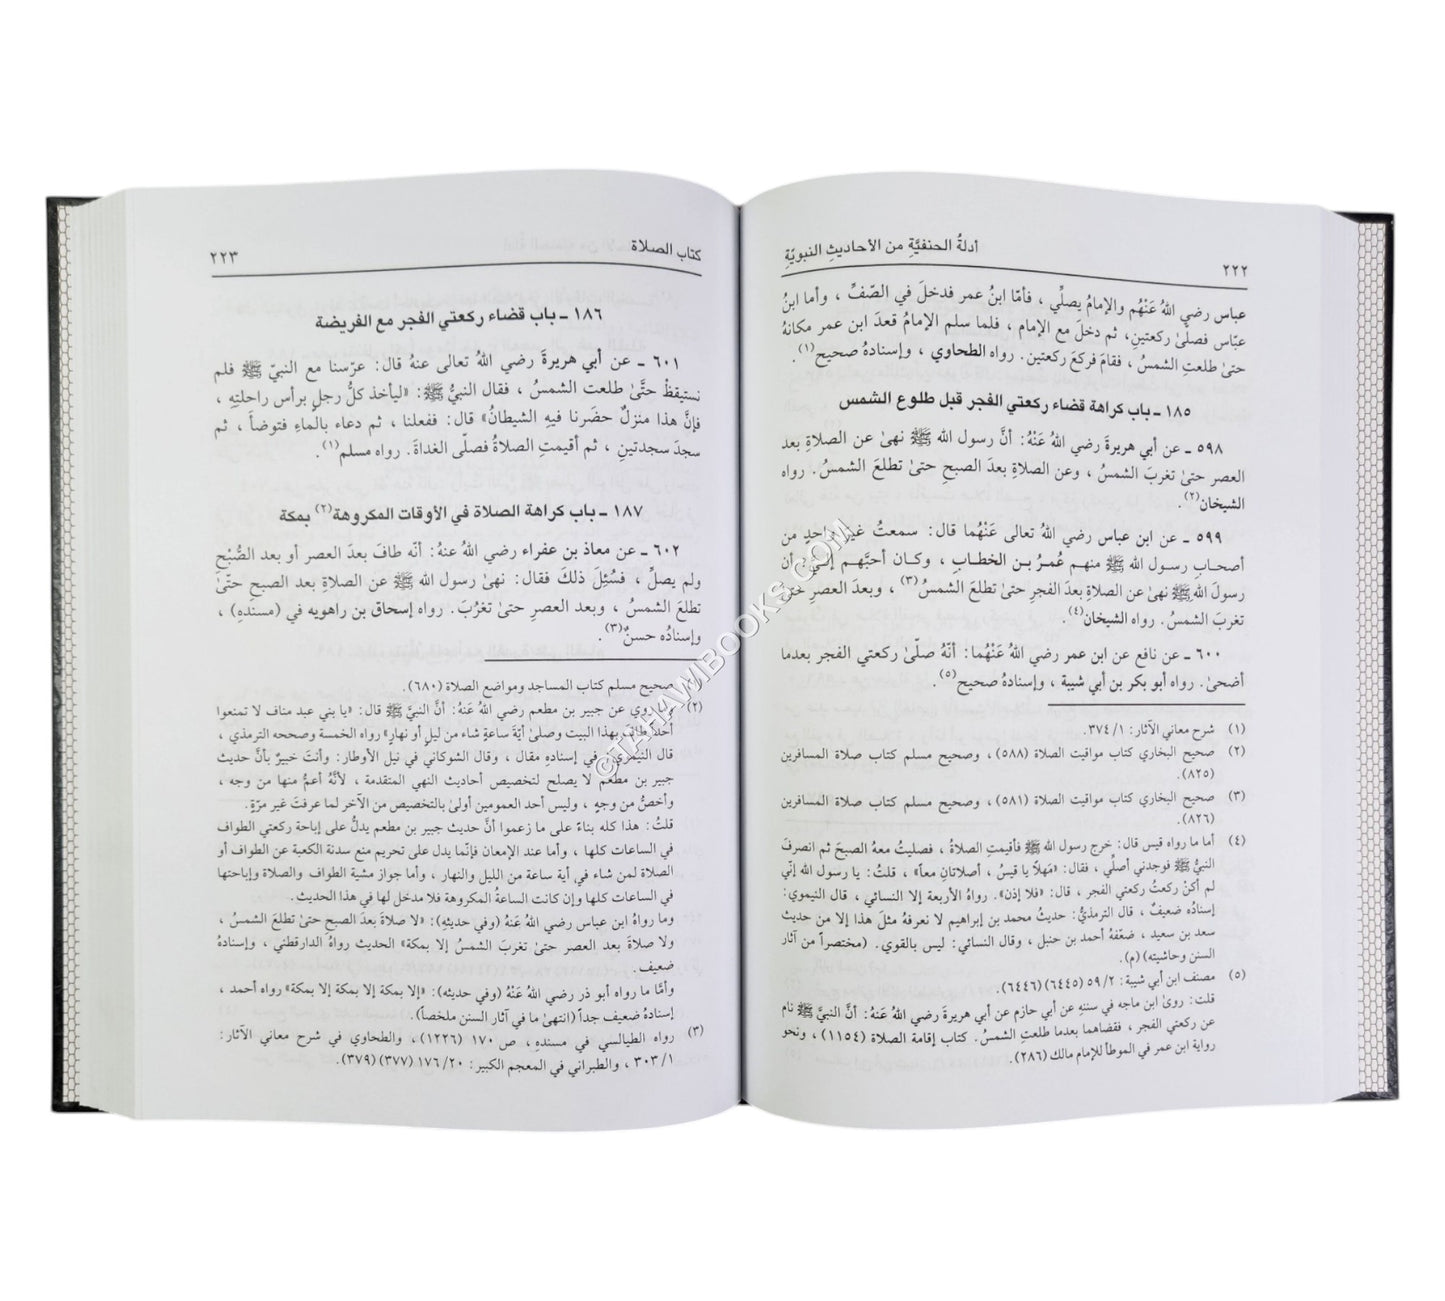 ٢٢٢
أدلةُ الحنفيَّةِ من الأحاديثِ النبويّةِ
عباس رضي اللهُ عَنْهُم والإمامُ يصلِّي ، فأمّا ابنُ عمر فدخلَ في الصّفِّ ، وأما ابنُ
عبّاس فصلّىٰ ركعتينِ، ثم دخلَ مع الإمام ، فلما سلم الإمامُ قعدَ ابن عمر مكانهُ
حتىٰ طلعتِ الشمسُ ، فقامَ فركعَ ركعتين. رواه الطحاوي ، وإسنادهُ صحيح(١).
١٨٥ ـ باب كراهة قضاء ركعتي الفجر قبل طلوع الشمس
٥٩٨ ـ عن أبي هريرةَ رضي اللهُ عَنْهُ: أنَّ رسول الله ﷺ نهىٰ عن الصلاةِ بعد
العصر حتىٰ تغربَ الشمسُ ، وعن الصلاةِ بعدَ الصبحِ حتىٰ تطلعَ الشمسُ. رواه
الشيخان(٢).
٥٩٩ ـ عن ابن عباس رضي اللهُ تعالى عَنْهُما قال: سمعتُ غيرَ واحدٍ من
أصحـابِ رسـول الله ﷺ منهـم عُمـرُ بـن الخطـابِ ، وكـان أحبَّهـم إليَّ: أن
رسولَ الله ﷺ نهىٰ عن الصلاةِ بعدَ الفجرِ حتىٰ تطلعَ الشمسُ(٣) ، وبعدَ العصرِ حتىٰ
تغربَ الشمسُ. رواه الشيخان(٤).
٦٠٠ ـ عن نافع عن ابن عمر رضي اللهُ عَنْهُما: أنّهُ صلّىٰ ركعتي الفجر بعدما
أضحىٰ. رواه أبو بكر بن أبي شيبة ، وإسنادهُ صحيح(٥).
(١) شرح معاني الآثار: ١/ ٣٧٤.
(٢) صحيح البخاري كتاب مواقيت الصلاة (٥٨٨) ، وصحيح مسلم كتاب صلاة المسافرين
(٨٢٥).
(٣) صحيح البخاري كتاب مواقيت الصلاة (٥٨١) ، وصحيح مسلم كتاب صلاة المسافرين
(٨٢٦).
(٤) أما ما رواه قيس قال: خرج رسول الله ﷺ فأقيمتِ الصلاةُ ، فصليتُ معهُ الصبحَ ثم انصرفَ
النبيُّ ﷺ فوجدني أصلِّي ، فقال: «مَهلاً يا قيسُ ، أصلاتانِ معاً» ، قلتُ: يا رسول الله إنّي
لم أكنْ ركعتُ ركعتي الفجر ، قال: «فلا إذن». رواهُ الأربعة إلا النسائي ، قال النيموي:
إسنادُه ضعيفٌ ، قال الترمذيُّ: حديثُ محمد بن إبراهيم لا نعرفهُ مثلَ هذا إلا من حديث
سعد بن سعيد ، ضعّفهُ أحمد بن حنبل ، وقال النسائي: ليس بالقوي. (مختصراً من آثار
السنن وحاشيته) (م).
(٥) مصنف ابن أبي شيبة: ٢/ ٥٩ (٦٤٤٥) (٦٤٤٦).
قلت: روىٰ ابن ماجه في سننه عن أبي حازم عن أبي هريرةَ رضي اللهُ عَنْهُ: أنَّ النبيَّ ﷺ نام
عن ركعتي الفجر ، فقضاهما بعدما طلعتِ الشمسُ. كتاب إقامة الصلاة (١١٥٤) ، ونحو
رواية ابن عمر في الموطأ للإمام مالك (٢٨٦).
كتاب الصلاة
٢٢٣
١٨٦ ـ باب قضاء ركعتي الفجر مع الفريضة
٦٠١ ـ عن أبي هريرةَ رضي اللهُ تعالى عنهُ قال: عرّسنا مع النبيّ ﷺ فلم
نستيقظْ حتَّىٰ طلعت الشمسُ ، فقال النبيُّ ﷺ: «ليأخذ كلُّ رجلٍ برأس راحلتِهِ ،
فإنَّ هذا منزلٌ حضَرنا فيهِ الشيطانُ» قال: ففعلنا ، ثم دعاء بالماءِ فتوضأ ، ثم
سجدَ سجدتينِ ، ثم أقيمتِ الصلاةُ فصلّى الغداةَ. رواه مسلم(١).
١٨٧ ـ باب كراهة الصلاة في الأوقات المكروهة(٢) بمكة
٦٠٢ ـ عن معاذ بن عفراء رضي اللهُ عنهُ: أنّه طافَ بعدَ العصر أو بعد الصُّبْحِ
ولم يصلِّ ، فسُئِلَ ذلكَ فقال: نهىٰ رسول الله ﷺ عن الصلاةِ بعد الصبحِ حتّىٰ
تطلعَ الشمسُ ، وبعد العصرِ حتىٰ تغرُبَ. رواه إسحاق بن راهويه في (مسندهِ) ،
وإسنادُه حسنٌ(٣).
(١) صحيح مسلم كتاب المساجد ومواضع الصلاة (٦٨٠).
(٢) روي عن جبير بن مطعم رضي اللهُ عَنهُ: أنَّ النبيَّ ﷺ قال: «يا بني عبد مناف لا تمنعوا
أحداً طافَ بهذا البيت وصلىٰ أيّةَ ساعةٍ شاء من ليلٍ أو نهارٍ» رواه الخمسة وصححه الترمذي ،
قال النيموي: في إسناده مقال ، وقال الشوكاني في نيل الأوطار: وأنتَ خبيرٌ بأنَّ حديث
جبير بن مطعم لا يصلح لتخصيص أحاديث النهي المتقدمة ، لأنَّهُ أعمُّ منها من وجه ،
وأخصُّ من وجهٍ ، وليس أحد العمومين أولىٰ بالتخصيص من الآخر لما عرفتَ غير مرّةٍ.
قلتُ: هذا كله بناءً على ما زعموا أنَّ حديث جبير بن مطعم يدلُّ على إباحة ركعتي الطواف
في الساعات كلها ، وأما عند الإمعان فإنّما يدل على تحريم منع سدنة الكعبة عن الطواف أو
الصلاة لمن شاء في أية ساعة من الليل والنهار ، وأما جواز مشية الطواف والصلاة وإباحتها
في الساعات كلها وإن كانت الساعةُ المكروهة فلا مدخل لها في هذا الحديث.
وما رواهُ ابن عباس رضي اللهُ عَنْهُ (وفي حديثهِ): «لا صلاةَ بعدَ الصبحِ حتىٰ تطلعَ الشمسُ ،
ولا صلاةَ بعد العصر حتىٰ تغربَ الشمسُ إلا بمكة» الحديث رواهُ الدارقطني ، وإسنادهُ
ضعيف.
وأمَّا ما رواه أبو ذر رضي اللهُ عَنْهُ (وفي حديثه): «إلا بمكة إلا بمكة إلا بمكة» رواه أحمد ،
إسنادهُ ضعيف جداً (انتهىٰ ما في آثار السنن ملخصاً).
(٣) رواه الطيالسي في مسنده، ص ١٧٠ (١٢٢٦)، والطحاوي في شرح معاني الآثار:
١/ ٣٠٣ ، والطبراني في المعجم الكبير: ٢٠/ ١٧٦ (٣٧٧) (٣٧٩).
©TAHAWIBOOKS.COM